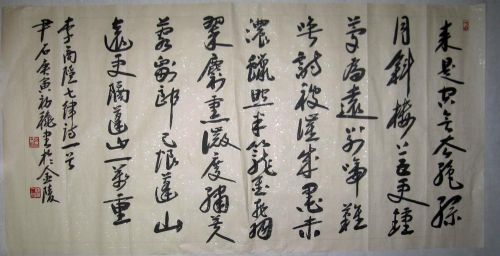 來是空言去絕踪
月斜樓上五更鐘
夢為遠別啼難
喚書被催成墨未
濃蠟照半籠金翡
翠麝熏微度繡芙
蓉劉郎已恨蓬山
遠更隔蓬山一萬重
李商隱七律詩一首
尹石庚寅初龝書於金陵